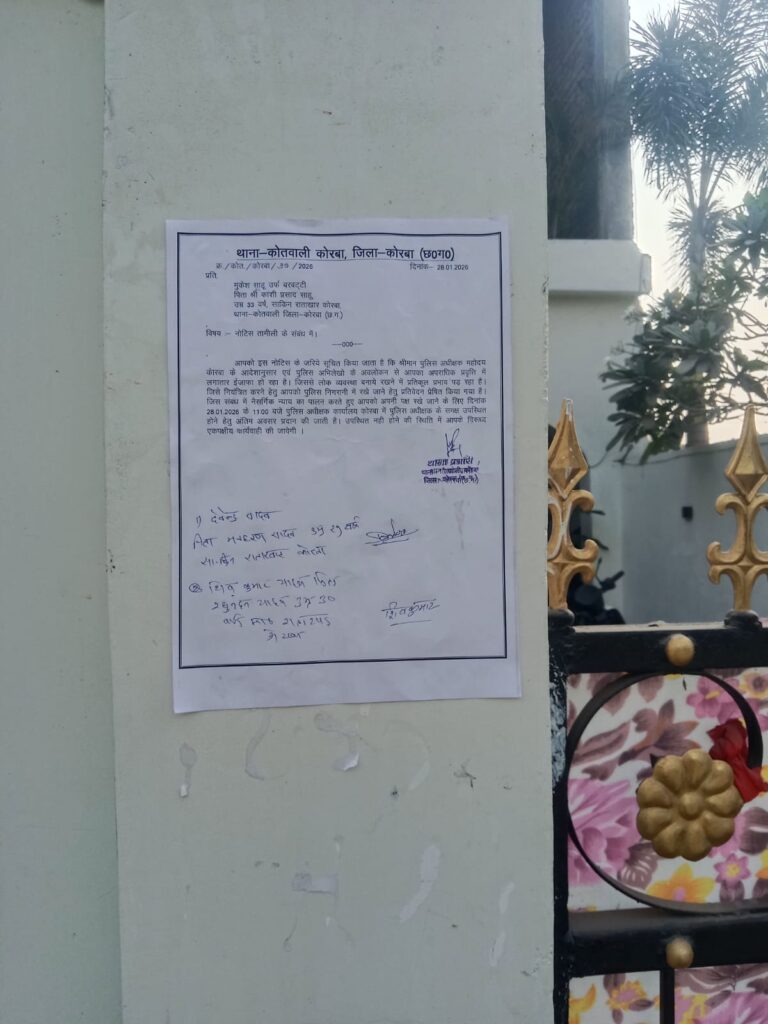 थाना–कोतवाली कोरबा, जिला–कोरबा (छ0ग0)
क्र./कोत./कोरबा/39/2026 दिनांक– 28.01.2026
प्रति,
मुकेश साहू उर्फ बरबट्टी
पिता श्री काशी प्रसाद साहू,
उम्र 33 वर्ष, साकिन राताखार कोरबा,
थाना–कोतवाली जिला–कोरबा (छ.ग.)
विषय :– नोटिस तामीली के संबंध में।
—000—
आपको इस नोटिस के जरिये सूचित किया जाता है कि श्रीमान पुलिस अधीक्षक महोदय
कोरबा के आदेशानुसार एवं पुलिस अभिलेखो के अवलोकन से आपका अपराधिक प्रवृत्ति में
लगातार ईजाफा हो रहा है। जिससे लोक व्यवस्था बनाये रखने में प्रतिकूल प्रभाव पड़ रहा हैं।
जिसे नियंत्रित करने हेतु आपको पुलिस निगरानी में रखे जाने हेतु प्रतिवेदन प्रेषित किया गया है।
जिस संबंध में नैसर्गिक न्याय का पालन करते हुए आपको अपनी पक्ष रखे जाने के लिए दिनांक
28.01.2026 के 11:00 बजे पुलिस अधीक्षक कार्यालय कोरबा में पुलिस अधीक्षक के समक्ष उपस्थित
होने हेतु अंतिम अवसर प्रदान की जाती है। उपस्थित नही होने की स्थिति में आपके विरूद्ध
एकपक्षीय कार्यवाही की जायेगी ।
थाना प्रभारी
1) देवेन्द्र यादव
पिता यादव उम्र 29 वर्ष
साकिन राताखार कोरबा
② शिव कुमार यादव पिता
यादव उम्र 30
वर्ष
कोरबा
शिवकुमार